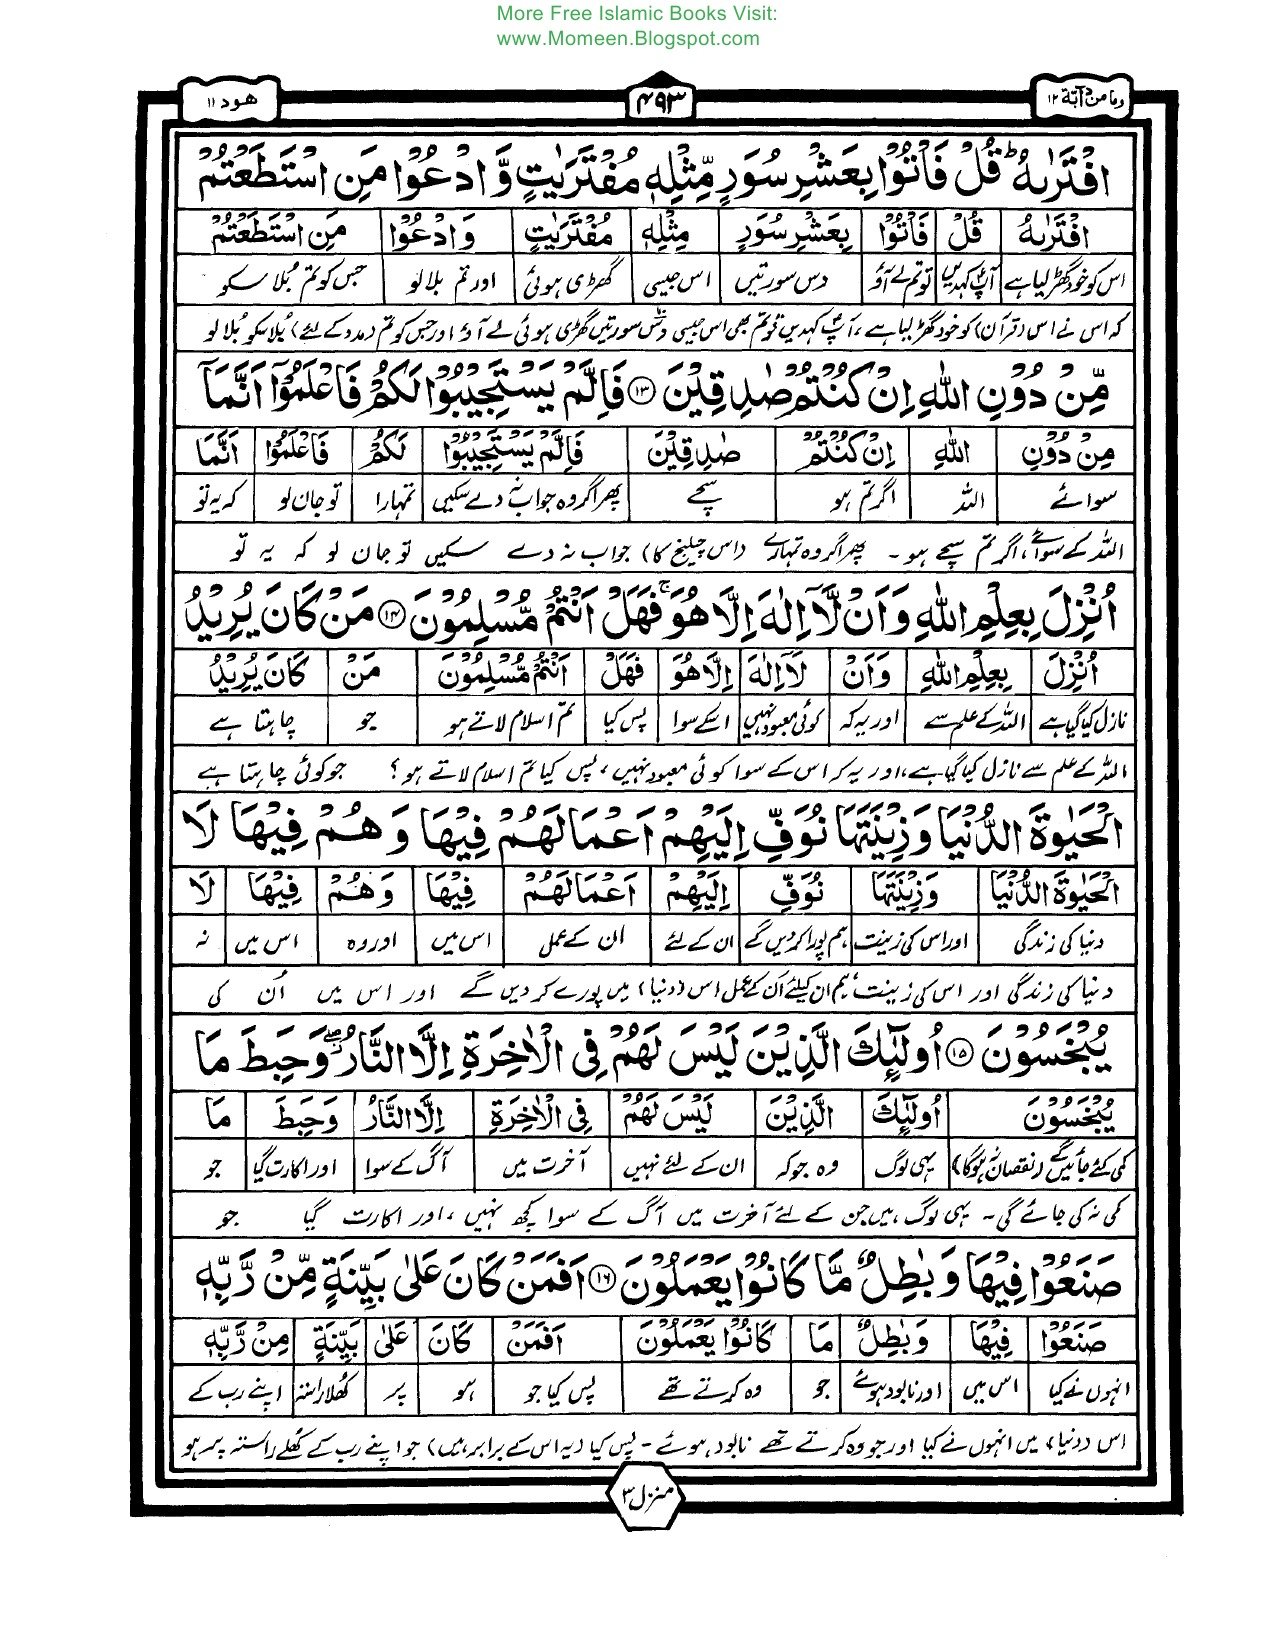 More Free Islamic Books Visit:
www.Momeen.Blogspot.com
وما من دآبة ۱۲
۴۹۳
هود ۱۱
افْتَرٰىهُ ؕ قُلْ فَاْتُوْا بِعَشْرِ سُوَرٍ مِّثْلِهٖ مُفْتَرَيٰتٍ وَّ ادْعُوْا مَنِ اسْتَطَعْتُمْ
افْتَرٰىهُ قُلْ فَاْتُوْا بِعَشْرِ سُوَرٍ مِثْلِهٖ مُفْتَرَيٰتٍ وَادْعُوْا مَنِ اسْتَطَعْتُمْ
اس کو خود گھڑ لیا ہے آپ کہدیں تو تم لے آؤ دس سورتیں اس جیسی گھڑی ہوئی اور تم بلا لو جس کو تم بُلا سکو
کہ اس نے اس (قرآن) کو خود گھڑ لیا ہے، آپ کہدیں تو تم بھی اس جیسی دس سورتیں گھڑی ہوئی لے آؤ اور جس کو تم (مدد کے لئے) بُلا سکو بُلا لو
مِّنْ دُوْنِ اللّٰهِ اِنْ كُنْتُمْ صٰدِقِيْنَ ۱۳ فَاِلَّمْ يَسْتَجِيْبُوْا لَكُمْ فَاعْلَمُوْٓا اَنَّمَآ
مِنْ دُوْنِ اللّٰهِ اِنْ كُنْتُمْ صٰدِقِيْنَ فَاِلَّمْ يَسْتَجِيْبُوْا لَكُمْ فَاعْلَمُوْٓا اَنَّمَآ
سوائے اللہ اگر تم ہو سچے پھر اگر وہ جواب نہ دے سکیں تمہارا تو جان لو کہ یہ تو
اللہ کے سوائے، اگر تم سچے ہو۔ پھر اگر وہ تمہارے (اس چیلنج کا) جواب نہ دے سکیں تو جان لو کہ یہ تو
اُنْزِلَ بِعِلْمِ اللّٰهِ وَاَنْ لَّآ اِلٰهَ اِلَّا هُوَ ۚ فَهَلْ اَنْتُمْ مُّسْلِمُوْنَ ۱۴ مَنْ كَانَ يُرِيْدُ
اُنْزِلَ بِعِلْمِ اللّٰهِ وَاَنْ لَآ اِلٰهَ اِلَّا هُوَ فَهَلْ اَنْتُمْ مُّسْلِمُوْنَ مَنْ كَانَ يُرِيْدُ
نازل کیا گیا ہے اللہ کے علم سے اور یہ کہ کوئی معبود نہیں اسکے سوا پس کیا تم اسلام لاتے ہو جو چاہتا ہے
اللہ کے علم سے نازل کیا گیا ہے، اور یہ کہ اس کے سوا کوئی معبود نہیں، پس کیا تم اسلام لاتے ہو؟ جو کوئی چاہتا ہے
الْحَيٰوةَ الدُّنْيَا وَزِيْنَتَهَا نُوَفِّ اِلَيْهِمْ اَعْمَالَهُمْ فِيْهَا وَهُمْ فِيْهَا لَا
الْحَيٰوةَ الدُّنْيَا وَزِيْنَتَهَا نُوَفِّ اِلَيْهِمْ اَعْمَالَهُمْ فِيْهَا وَهُمْ فِيْهَا لَا
دنیا کی زندگی اور اس کی زینت ہم پورا کر دیں گے ان کے لئے ان کے عمل اس میں اور وہ اس میں نہ
دنیا کی زندگی اور اس کی زینت، ہم ان کیلئے اُن کے عمل اس (دنیا) میں پورے کر دیں گے اور اس میں اُن کی
يُبْخَسُوْنَ ۱۵ اُولٰٓئِكَ الَّذِيْنَ لَيْسَ لَهُمْ فِى الْاٰخِرَةِ اِلَّا النَّارُ ۖ وَحَبِطَ مَا
يُبْخَسُوْنَ اُولٰٓئِكَ الَّذِيْنَ لَيْسَ لَهُمْ فِى الْاٰخِرَةِ اِلَّا النَّارُ وَحَبِطَ مَا
کمی کئے جائیں گے (نقصان نہ ہوگا) یہی لوگ وہ جو کہ ان کے لئے نہیں آخرت میں آگ کے سوا اور اکارت گیا جو
کمی نہ کی جائے گی۔ یہی لوگ ہیں جن کے لئے آخرت میں آگ کے سوا کچھ نہیں، اور اکارت گیا جو
صَنَعُوْا فِيْهَا وَبٰطِلٌ مَّا كَانُوْا يَعْمَلُوْنَ ۱۶ اَفَمَنْ كَانَ عَلٰى بَيِّنَةٍ مِّنْ رَّبِّهٖ
صَنَعُوْا فِيْهَا وَبٰطِلٌ مَا كَانُوْا يَعْمَلُوْنَ اَفَمَنْ كَانَ عَلٰى بَيِّنَةٍ مِنْ رَّبِّهٖ
انہوں نے کیا اس میں اور نابود ہوئے جو وہ کرتے تھے پس کیا جو ہو پر کھلا راستہ اپنے رب کے
اس (دنیا) میں انہوں نے کیا اور جو وہ کرتے تھے نابود ہوئے۔ پس کیا (یہ اس کے برابر ہیں) جو اپنے رب کے کُھلے راستہ پر ہو
منزل ۳